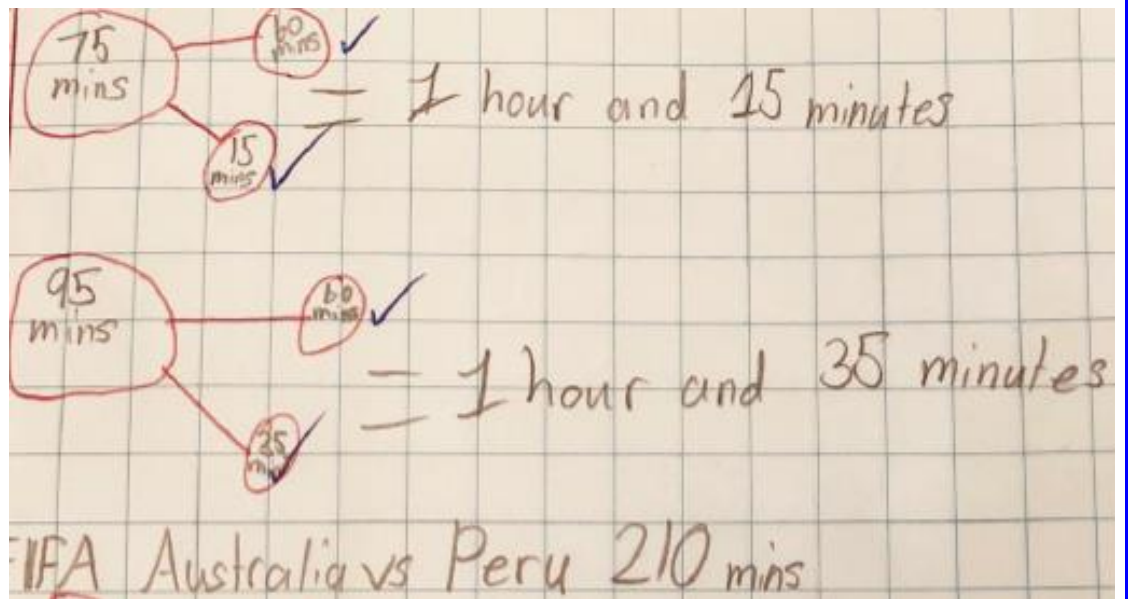 75 mins
60 mins
= 1 hour and 15 minutes
15 mins
95 mins
60 mins
= 1 hour and 35 minutes
mins
FIFA Australia vs Peru 210 mins